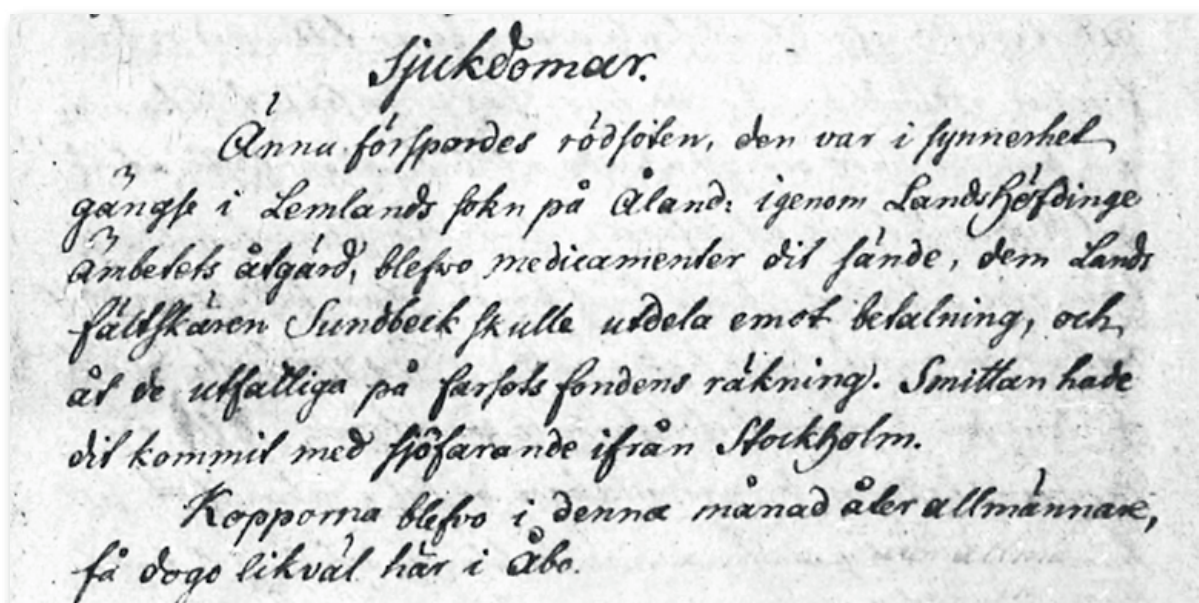 Sjukdomar.
Ännu förspordes rödsoten, den var i synnerhet
gängse i Lemlands sokn på Åland: igenom LandsHöfdinge
ämbetets åtgärd, blefvo medicamenter dit sände, dem Lands
fältskären Sundbeck skulle utdela emot betalning, och
åt de utfattiga på farsots fondens räkning. Smittan hade
dit kommit med sjöfarande ifrån Stockholm.
Kopporna blefvo i denna månad åter allmännare,
få dogo likväl här i Åbo.